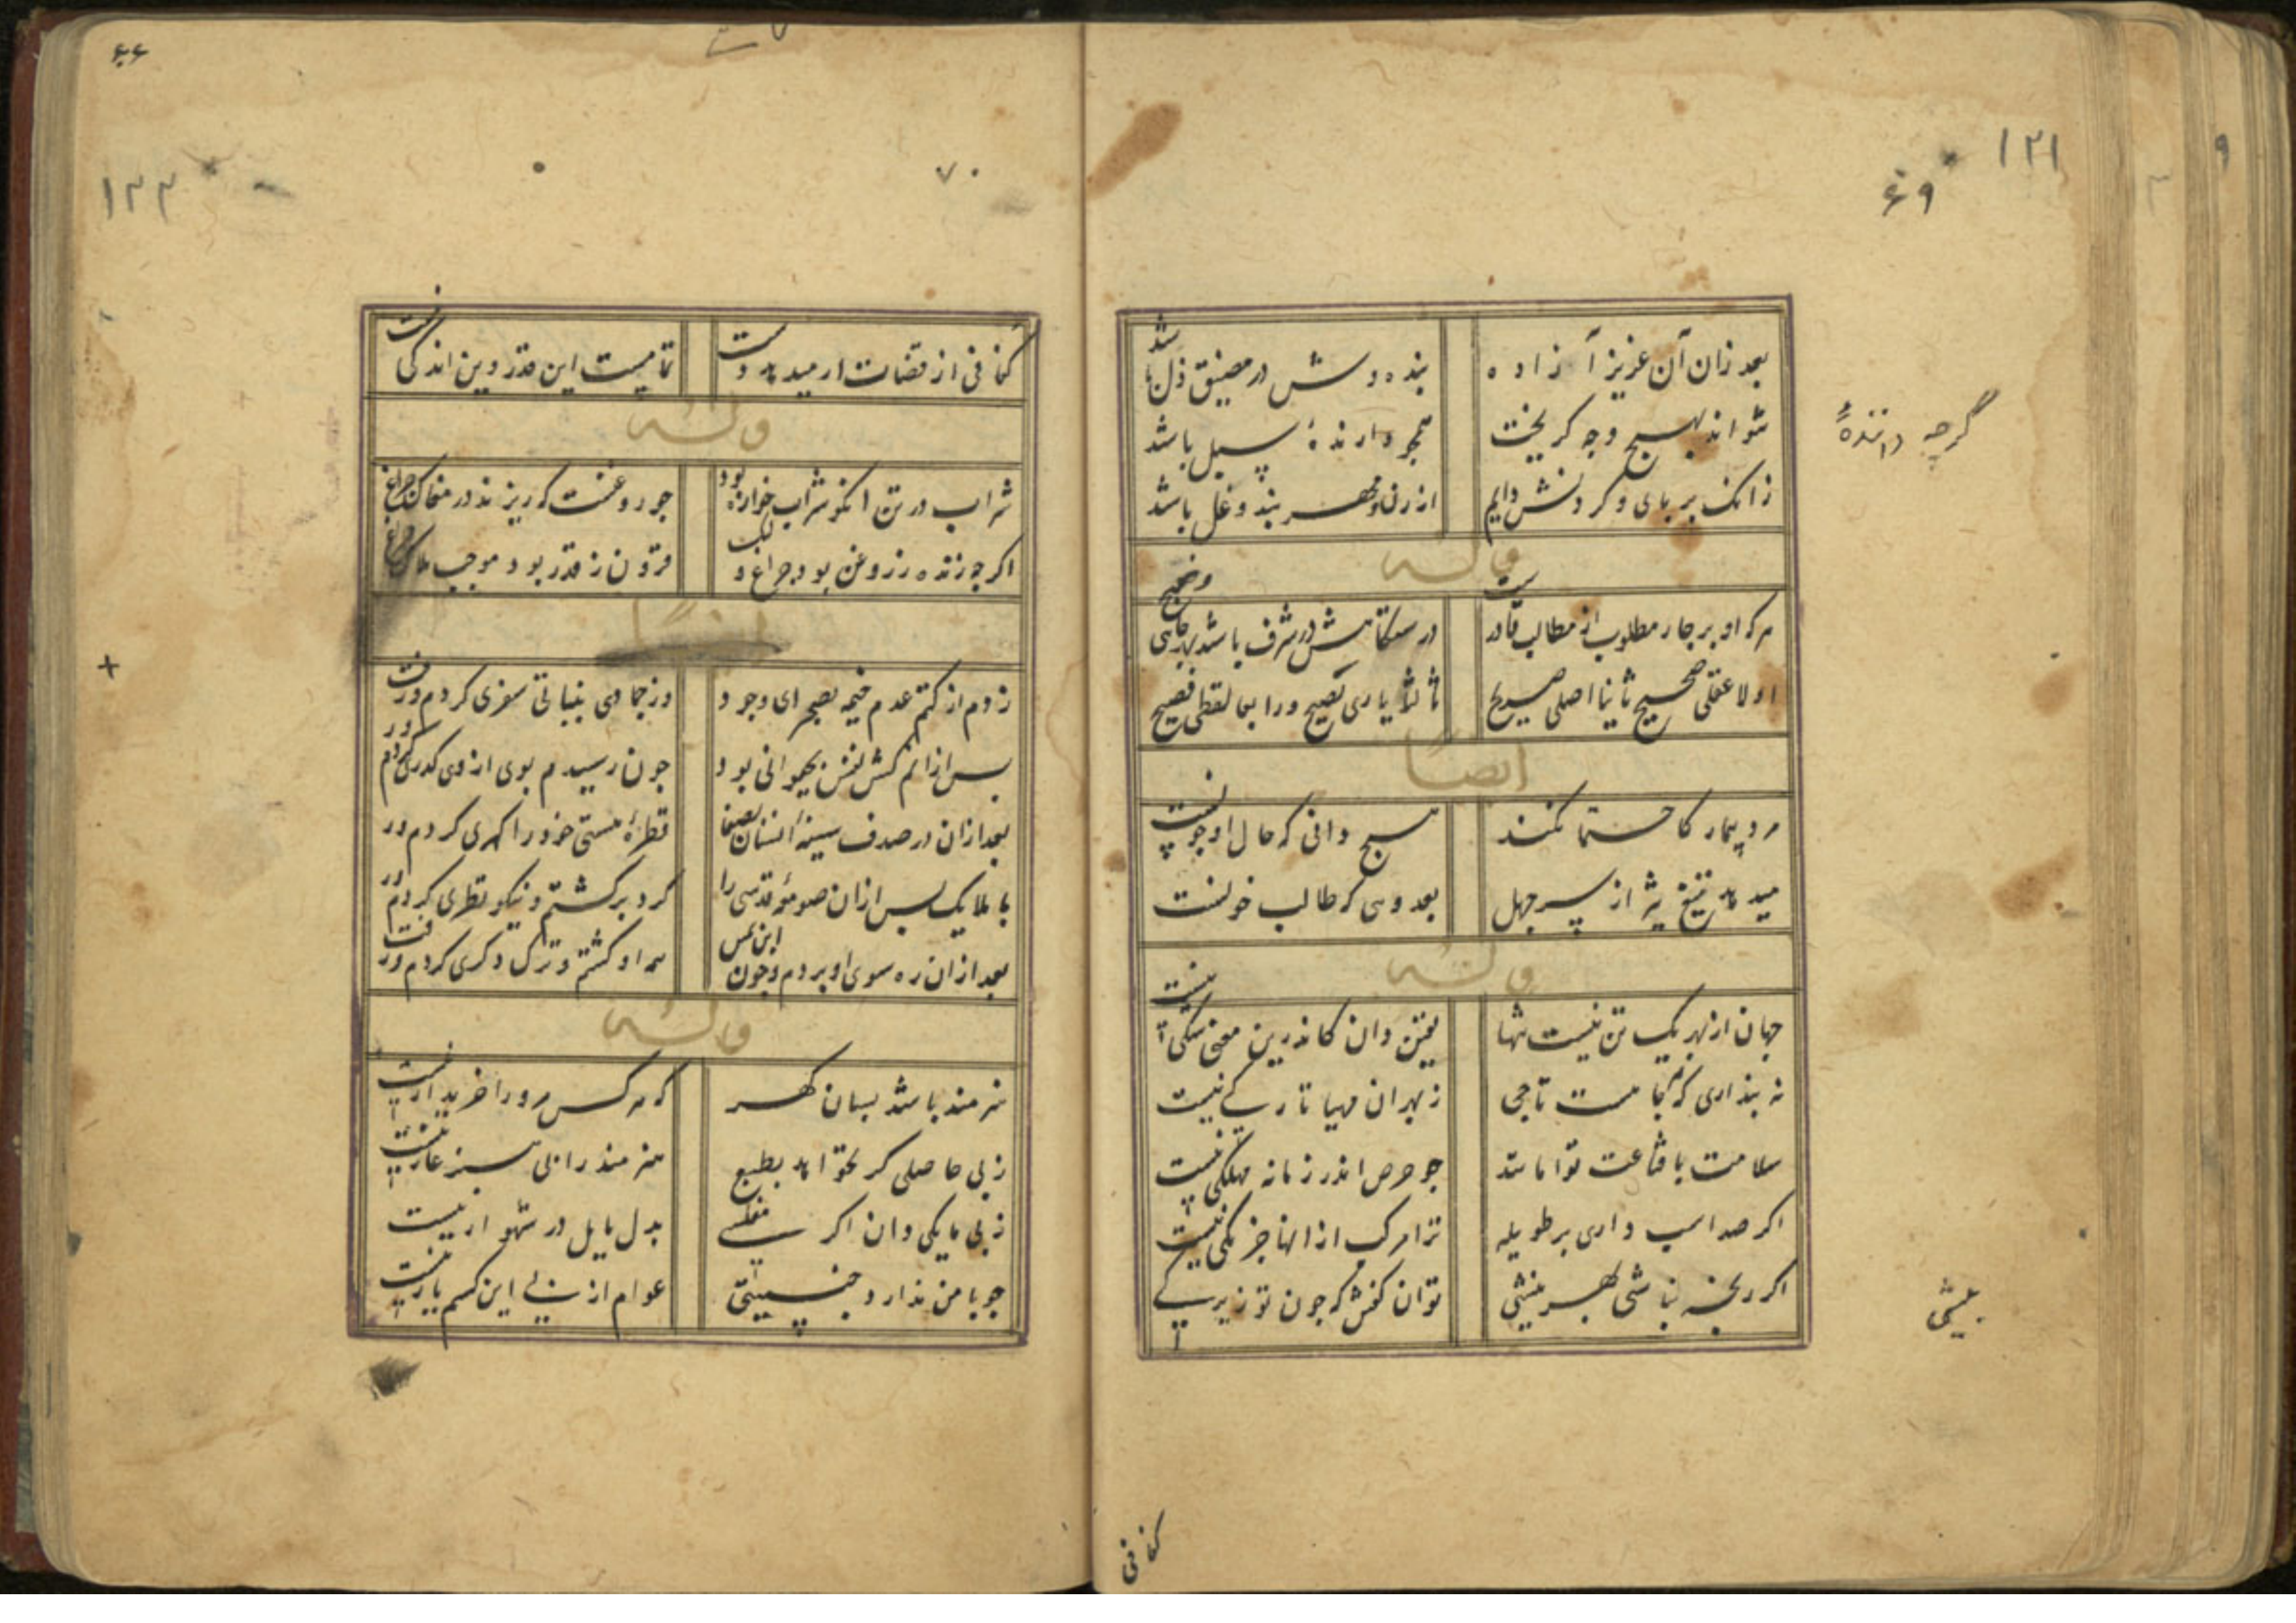 ۱۳۱
۶۹
بعد زان آن عزیز آزاده
بنده وش در مضیق ذل باشد
نتواند بهیچ وجه کریخت
گرچه دانندهٔ
سبل باشد
زانک بر بای و کردنش دایم
از زن و مهر بند و غل باشد
وله
هر که او بر چار مطلوب از مطالب قادرست
اولا عقلی صحیح ثانیا اصلی صریح
ثالثا یاری نصیح و رابعا لفظی فصیح
ایضا
مرد بیمار کاحتما نکند
هیچ دانی که حال او چونست
میدهد تیغ تیز از سر جهل
بعدوی که طالب خونست
وله
جهان از بهر یک تن نیست تنها
یقین دان کاندرین معنی شکی نیست
نه بنداری که هر جا هست تاجی
ز بهر آن مهیا تارکی نیست
سلامت با قناعت توامانند
چو حرص اندر زمانه مهلکی نیست
اکر صد اسب داری بر طویله
ترا مرکب از آنها جز یکی نیست
اکر رنجه نباشی بهر بیشی
بیشی
توان کفتن که چون تو زیرکی نیست
کفافی
۶۶
۱۳۳
۷۰
کفافی از قضات ار میدهد دست
تمامست این قدر وین اندکی نیست
وله
شراب در تن انکو شرابخواره بود
چو روغنست که ریزند در مغاک چراغ
اکرچه زنده ز روغن بود چراغ ولیک
فزون ز قدر بود موجب هلاک چراغ
ایضا
زدم از کتم عدم خیمه بصحرای وجود
وز جمادی بنباتی سفری کردم و رفت
بس ازانم کشش نفس بحیوانی بود
چون رسیدم بوی از وی کذری کردم و رفت
بعد ازان در صدف سینهٔ انسان بصفا
قطرهٔ هستی خود را کهری کردم و رفت
با ملایک بس ازان صومعهٔ قدسی را
کرد برکشتم و نیکو نظری کردم و رفت
بعد ازان ره سوی او بردم و چون ابن یمین
همه او کشتم و ترک دکری کردم و رفت
وله
هنرمند باشد بسان کهر
که هر کس مرو را خریدار نیست
ز بی حاصلی کر نخواهد بطبع
هنرمند را بی هنر عار نیست
ز بی مایکی دان اکر مفلسی
بدل مایل در شهوار نیست
چو با من ندارد جنسیتی
عوام از نیی این کسم یار نیست